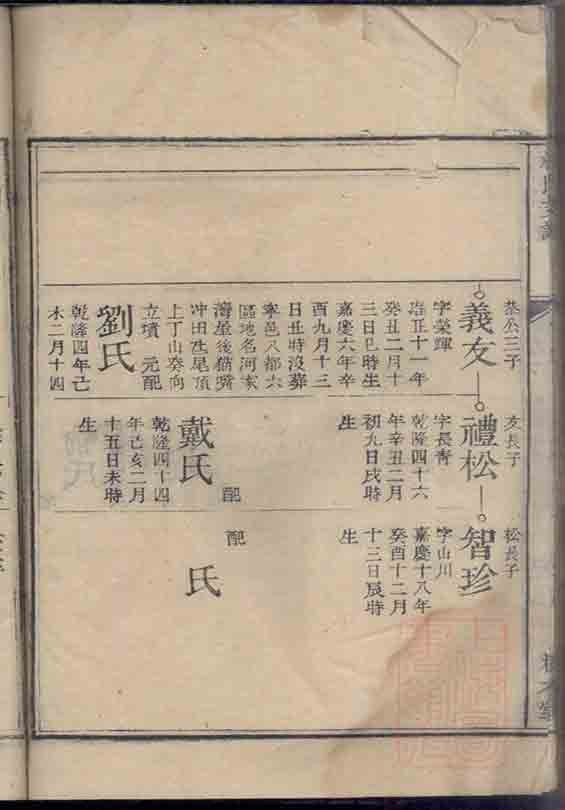 恭公三子
義友
字榮輝
雍正十一年
癸丑二月十
三日巳時生
嘉慶六年辛
酉九月十三
日丑時沒葬
寧邑八都六
區地名河家
灣屋後貓嘴
冲田莊尾頂
上丁山癸向
立墳 元配
劉氏
乾隆四年己
未二月十四
友長子
禮松
字長青
乾隆四十六
年辛丑二月
初九日戌時
生
配
戴氏
乾隆四十四
年己亥二月
十五日未時
生
松長子
智珍
字山川
嘉慶十八年
癸酉十二月
十三日辰時
生
配
氏